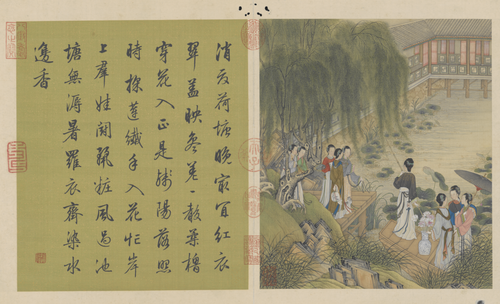 消夏荷塘晚最宜紅衣
翠蓋映參差一聲柔櫓
穿花入正是殘陽落照
時採蓮纖手入花忙岸
上群娃鬥靚粧風過池
塘無溽暑羅衣齊染水
邊香